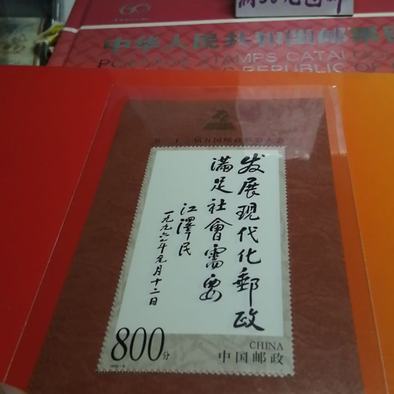 中华人民共和国邮票
STAMPS CATAL
REPUBLIC OF
发展现代化郵政
滿足社會需要
江澤民
一九九六年元月十二日
800分
CHINA
中国邮政